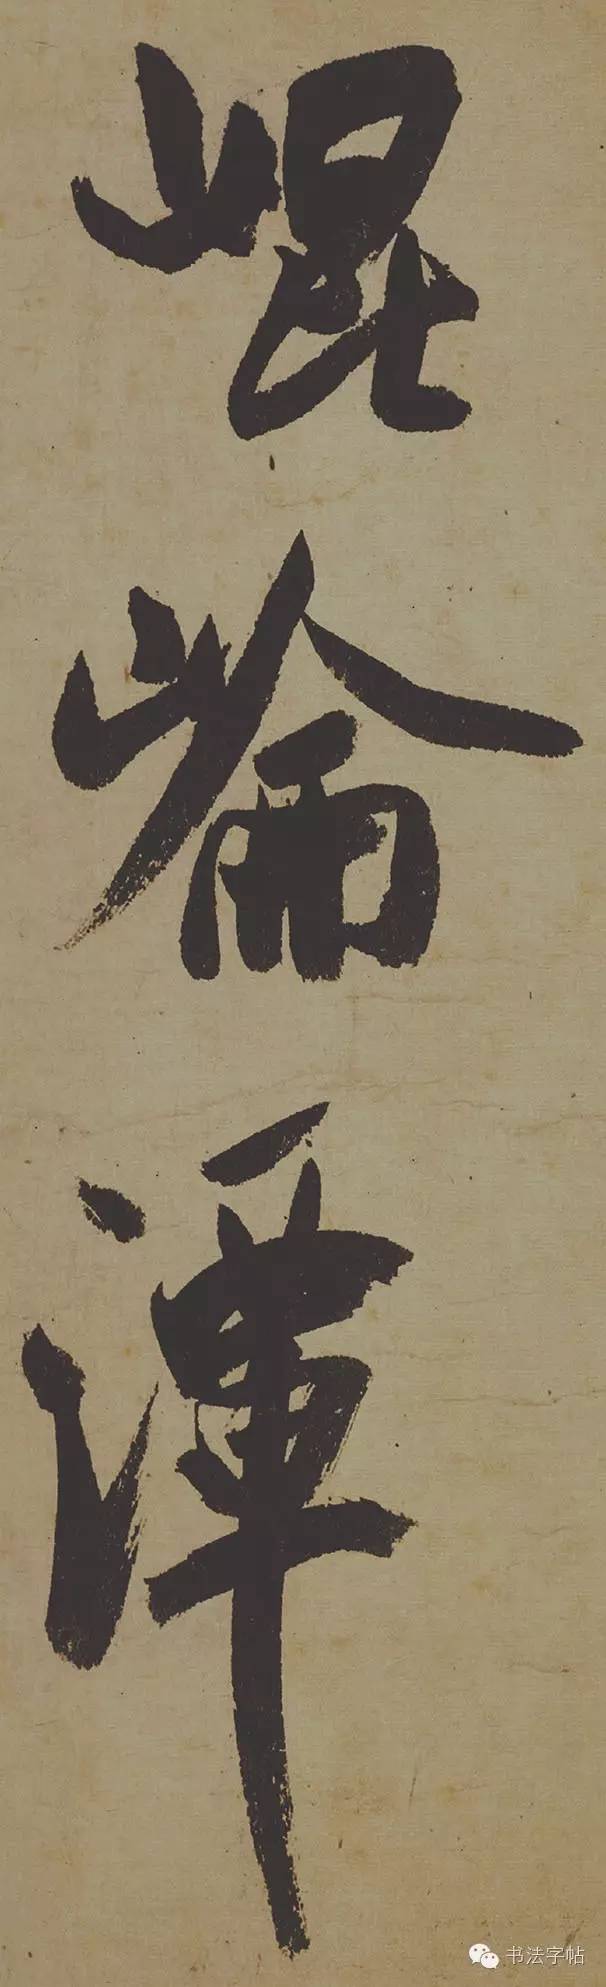 崐崘潭
书法字帖